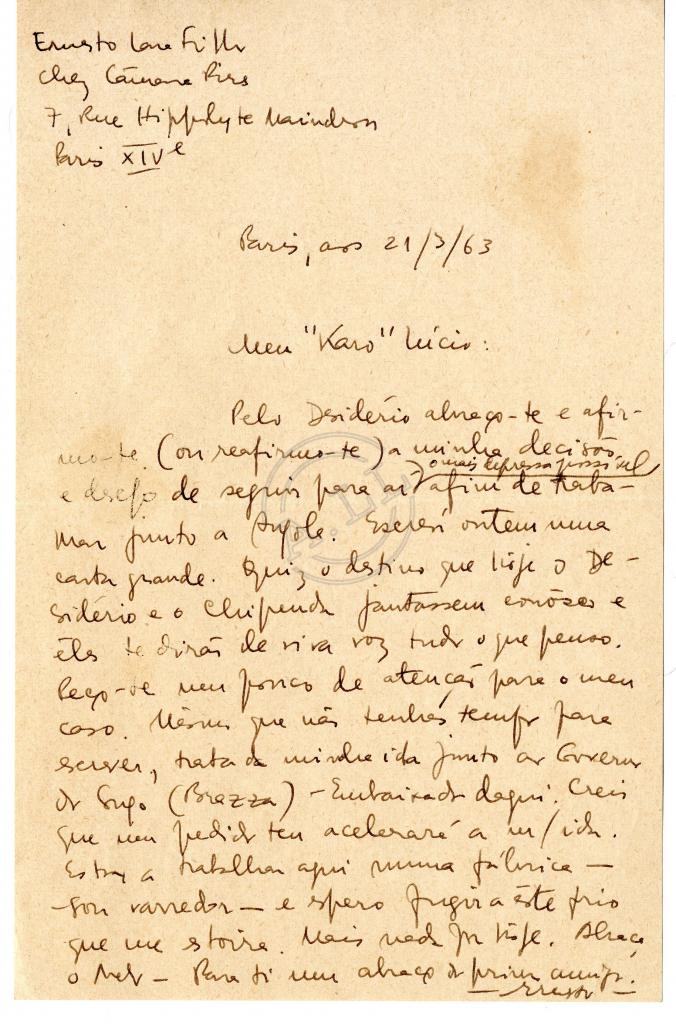 Ernesto Lara Filho
Chez Câmara Pires
7, Rue Hippolyte Maindron
Paris XIVe
Paris, aos 21/3/63
Meu "Karo" Lúcio:
Pelo Desidério abraço-te e afir-
mo-te (ou reafirmo-te) a minha decisão
o mais depressa possível
e desejo de seguir para aí afim de traba-
lhar junto a Angola. Escrevi ontem uma
carta grande. Quiz o destino que hoje o De-
sidério e o Chipenda jantassem conôsco e
êles te dirão de viva voz tudo o que penso.
Peço-te um pouco de atenção para o meu
caso. Mesmo que não tenhas tempo para
escrever, trata da minha ida junto ao Governo
do Congo (Brazza) - Embaixada daqui. Creio
que um pedido teu acelerará a m/ida.
Estou a trabalhar aqui numa fábrica -
- sou varredor - e espero fugir a êste frio
que me estoira. Mais nada por hoje. Abraça
o - Para ti um abraço do primo amigo.
Ernesto